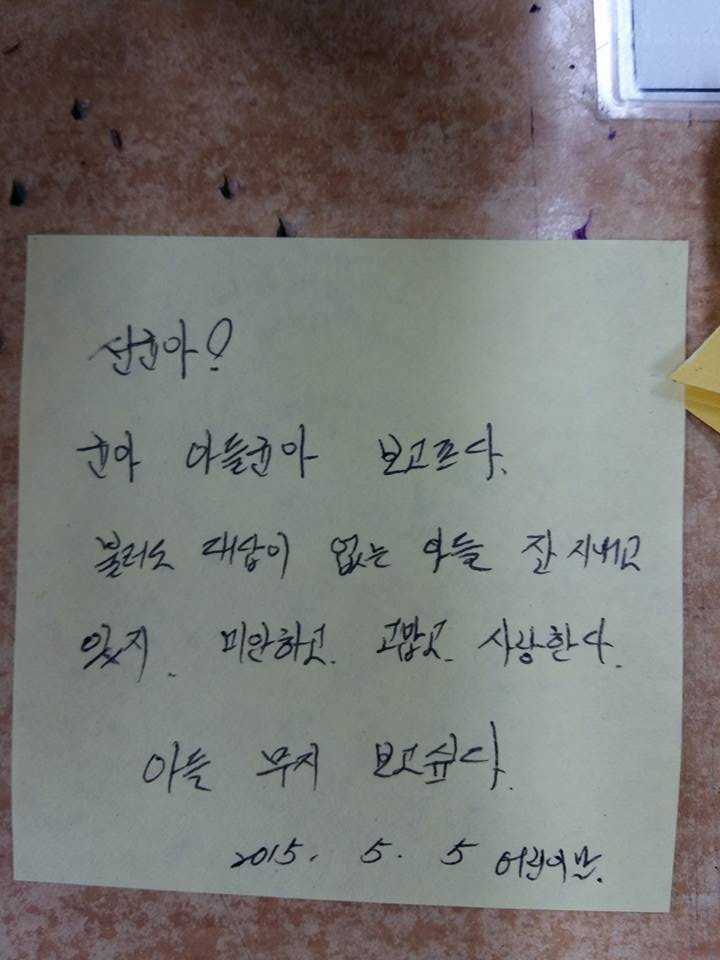 선균아!
균아 아들균아 보고프다.
불러도 대답이 없는 아들 잘 지내고
있지. 미안하고. 고맙고. 사랑한다.
아들 무지 보고슆다.
2015. 5. 5 어린이날.